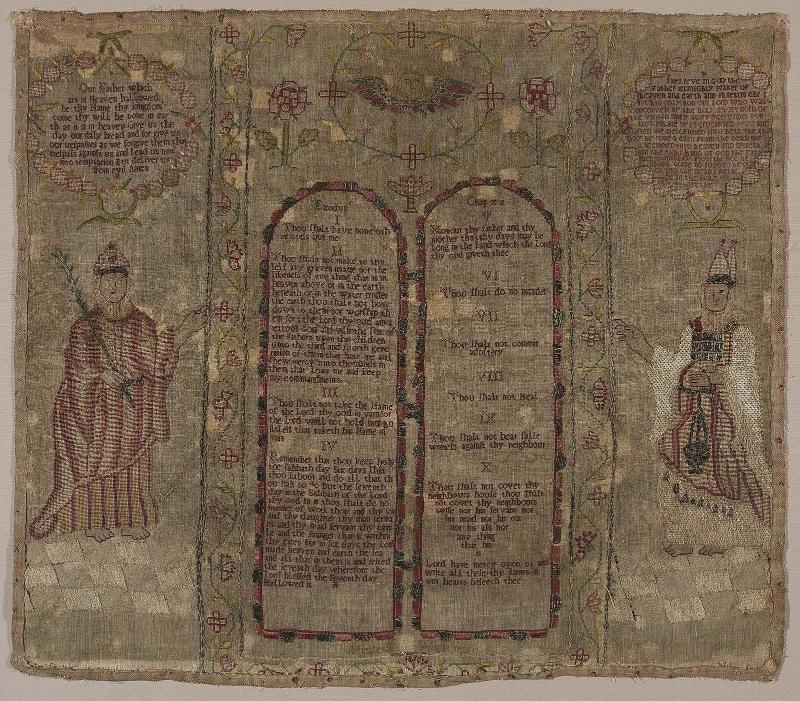 Our Father which
art in Heaven hallowed
be thy Name thy kingdom
come thy will be done in ear
th as it is in heaven Give us this
day our daily bread and forgive us
our trespases as we forgive them that
trespass against us and Lead us not
into temptation But deliver us
from evil Amen
I believe in God the
Father Almighty Maker of
heaven and earth and in Jesus
his only son our Lord who was
Exodus
I
Thou shalt have none oth
er gods but me
II
Thou shalt not make to thy
self any graven image nor the
likeness of any thing that is in
heaven above or in the earth
beneath or in the water under
the earth thou shalt not bow
down to them nor worship
for I the Lord thy god am a
the fathers upon the children
unto the third and fourth gene
ration of them that hate me and
shew mercy unto thousands in
them that Love me and keep
my commandments
III
Thou shalt not take the Name
of the Lord thy god in vain for
the Lord will not hold him gu
iltless that taketh his Name in
vain
IV
Remember that thou keep holy
the sabbath day Six days shalt
thou labour and do all that th
ou hast to do but the seventh
day is the Sabbath of the Lord
thy God in it thou shalt do no
manner of work thou and thy son
and thy daughter thy man serva
nt and thy maid servant thy catt
le and the stranger that is within
thy gates For in six days the Lord
made heaven and earth the sea
and all that in them is and rested
the seventh day wherefore the
Lord blessed the seventh day
Hallowed it
Chap xx
V
Honour thy father and thy
mother that thy days may be
Long in the land which the Lord
thy god giveth thee
VI
Thou shalt do no murder
VII
Thou shalt not commit
adultery
VIII
Thou shalt not steal
IX
Thou shalt not bear false
witness against thy neighbour
X
Thou shalt not covet thy
neighbours house thou shalt
not covet thy neighbours
wife nor his servant nor
his maid nor his ox
nor his ass nor
any thing
that his
Lord have mercy upon us and
write all these thy Laws in
our hearts beseech thee